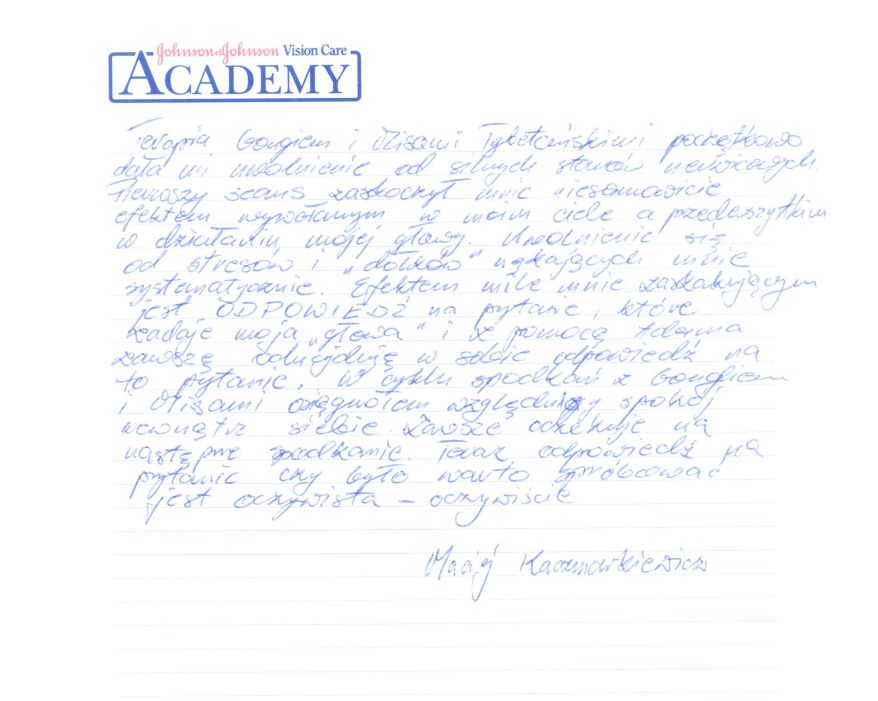 Johnson & Johnson Vision Care
ACADEMY
Terapia Gongiem i Misami Tybetańskimi początkowo
dała mi uwolnienie od silnych stanów nerwicowych.
Pierwszy seans zaskoczył mnie niesamowicie
efektem wywołanym w moim ciele a przedewszytkim
w działaniu mojej głowy. Uwolnienie się
od stresów i „dołków" nękających mnie
systematycznie. Efektem mile mnie zaskakującym
jest ODPOWIEDŹ na pytanie, które
zadaje moja „głowa" i z pomocą Adama
zawszę odnajduję w sobie odpowiedź na
to pytanie. W cyklu spodkań z Gongiem
i Misami osiągnołem względny spokój
wewnątrz siebie. Zawsze oczekuję na
następne spodkanie. Teraz odpowiedź na
pytanie czy było warto spróbować
jest oczywista – oczywiście
Maciej Kaczmarkiewicz